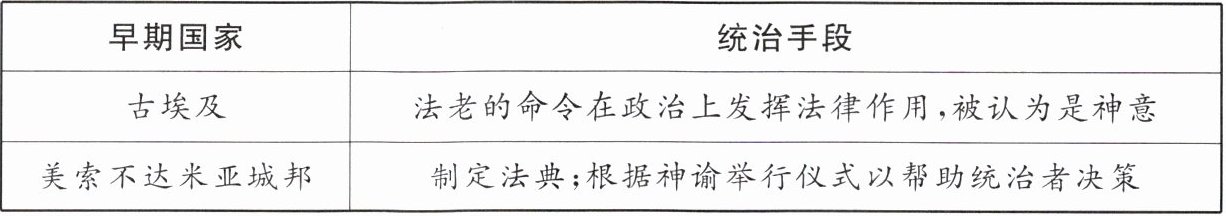 早期国家 统治手段
古埃及 法老的命令在政治上发挥法律作用,被认为是神意
美索不达米亚城邦 制定法典;根据神谕举行仪式以帮助统治者决策